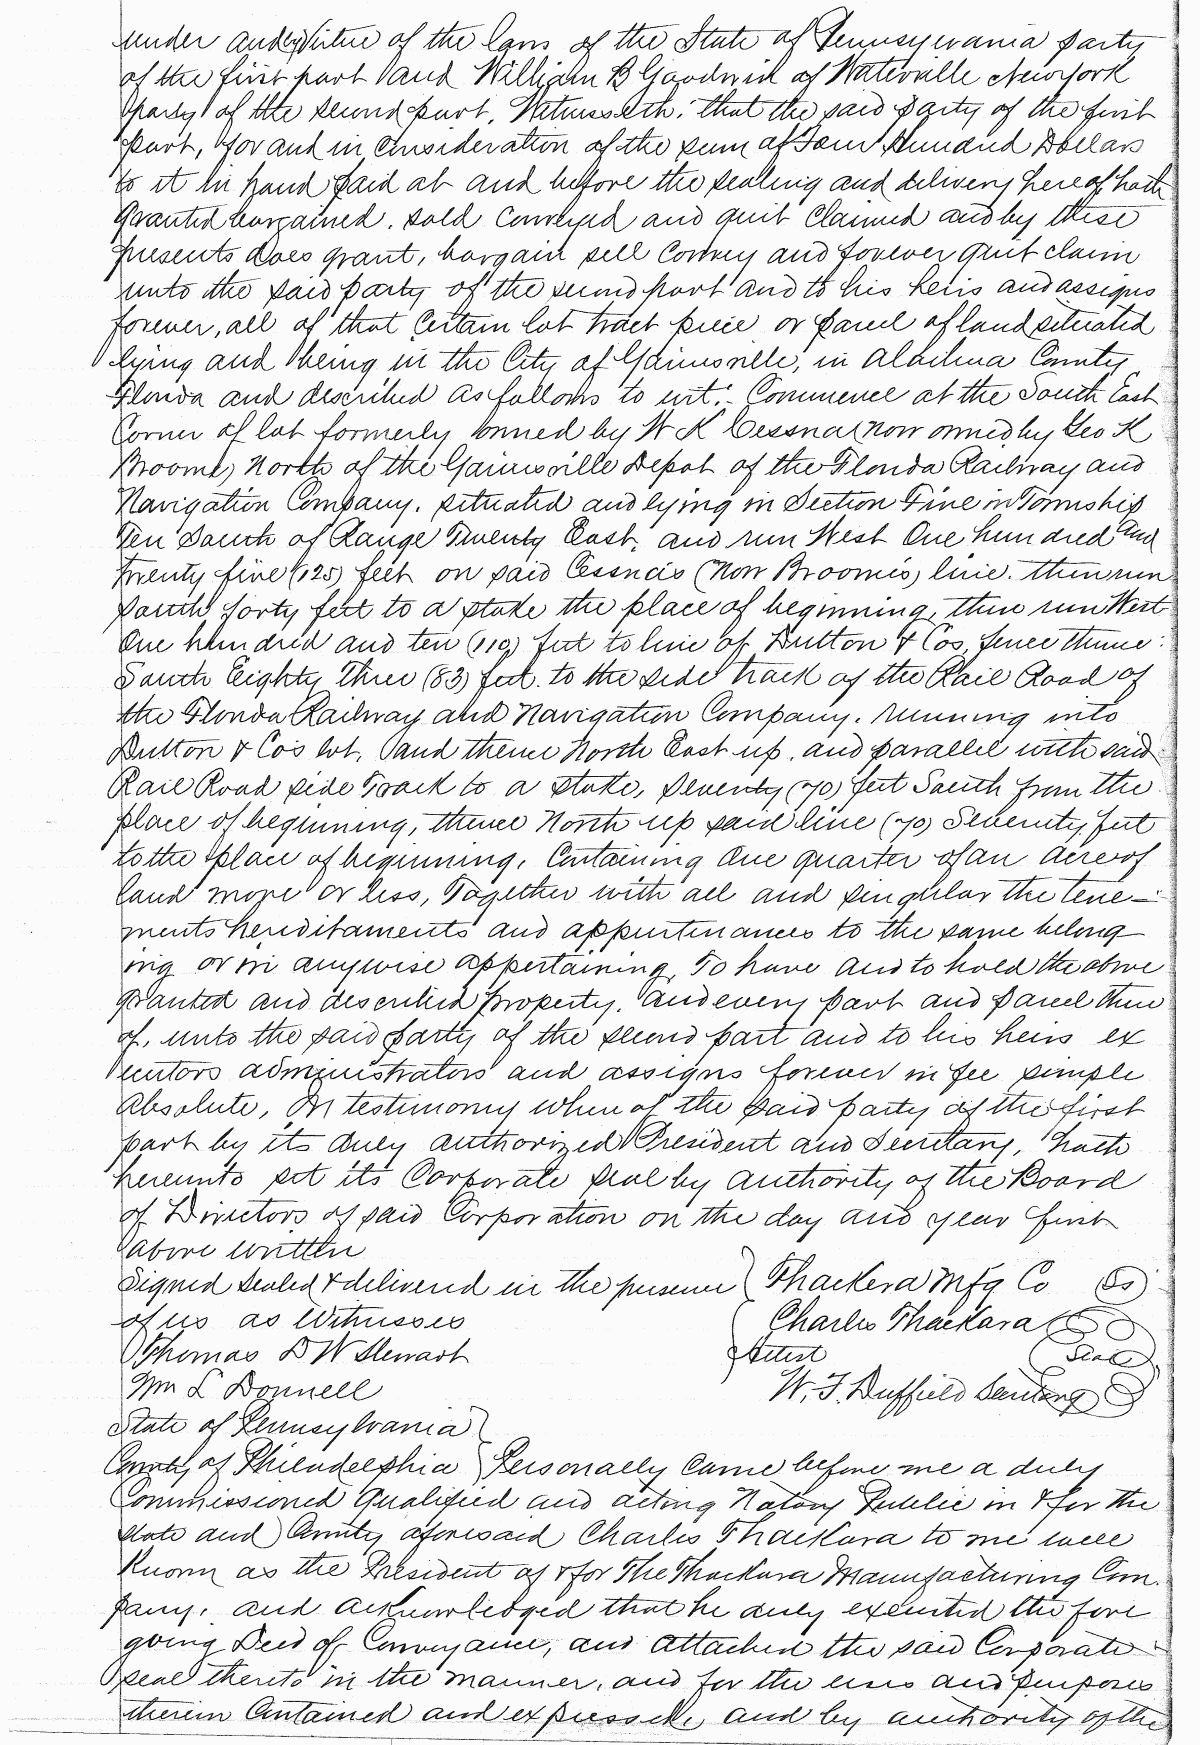 under and by virtue of the laws of the State of Pennsylvania party
of the first part and William B Goodwin of Waterville New York
party of the second part, Witnesseth: that the said party of the first
part, for and in consideration of the sum of Four Hundred Dollars
to it in hand paid at and before the sealing and delivery hereof hath
granted bargained, sold conveyed and quit claimed and by these
presents does grant, bargain sell convey and forever quit claim
unto the said party of the second part and to his heirs and assigns
forever, all of that certain lot tract piece or parcel of land situated
lying and being in the City of Gainesville, in Alachua County
Florida and described as follows to wit:- Commence at the South East
Corner of lot formerly owned by W K Cessna (now owned by Geo K
Broome) North of the Gainesville Depot of the Florida Railway and
Navigation Company. situated and lying in Section Five in Township
Ten South of Range Twenty East, and run West One hundred and
twenty five (125) feet on said Cessna's (now Broome's) line. then run
South forty feet to a stake the place of beginning, then run West
One hundred and ten (110) feet to line of Dutton & Cos, fence thence
South Eighty Three (83) feet. to the side track of the Rail Road of
the Florida Railway and Navigation Company. running into
Dutton & Co's lot, and thence North East up. and parallel with said
Rail Road side Track to a stake, seventy (70) feet South from the
place of beginning, thence North up said line (70) Seventy feet
to the place of beginning, Containing One quarter of an acre of
land more or less, Together with all and singular the tene-
ments hereditaments and appurtenances to the same belong
ing or in anywise appertaining, To have and to hold the above
granted and described property. and every part and parcel there
of, unto the said party of the second part and to his heirs ex
ecutors administrators and assigns forever in fee simple
Absolute, In testimony where of the said party of the first
part by its duly authorized President and Secretary, hath
hereunto set its Corporate seal by authority of the Board
of Directors of said Corporation on the day and year first
above written
Signed sealed & delivered in the presence } Thackera Mfg Co (Ss)
of us as Witnesses Charles Thackara
Thomas D W Stewart Attest Seal
Wm L Donnell W. F. Duffield Secretary
State of Pennsylvania }
County of Philadelphia } Personally came before me a duly
Commissioned Qualified and acting Notary Public in & for the
state and County aforesaid Charles Thackara to me well
Known as the President of & for The Thackara Manufacturing Com.
pany, and acknowledged that he duly executed the fore
going Deed of Conveyance, and attached the said Corporate
seal thereto in the manner, and for the uses and purposes
therein Contained and expressed, and by authority of the